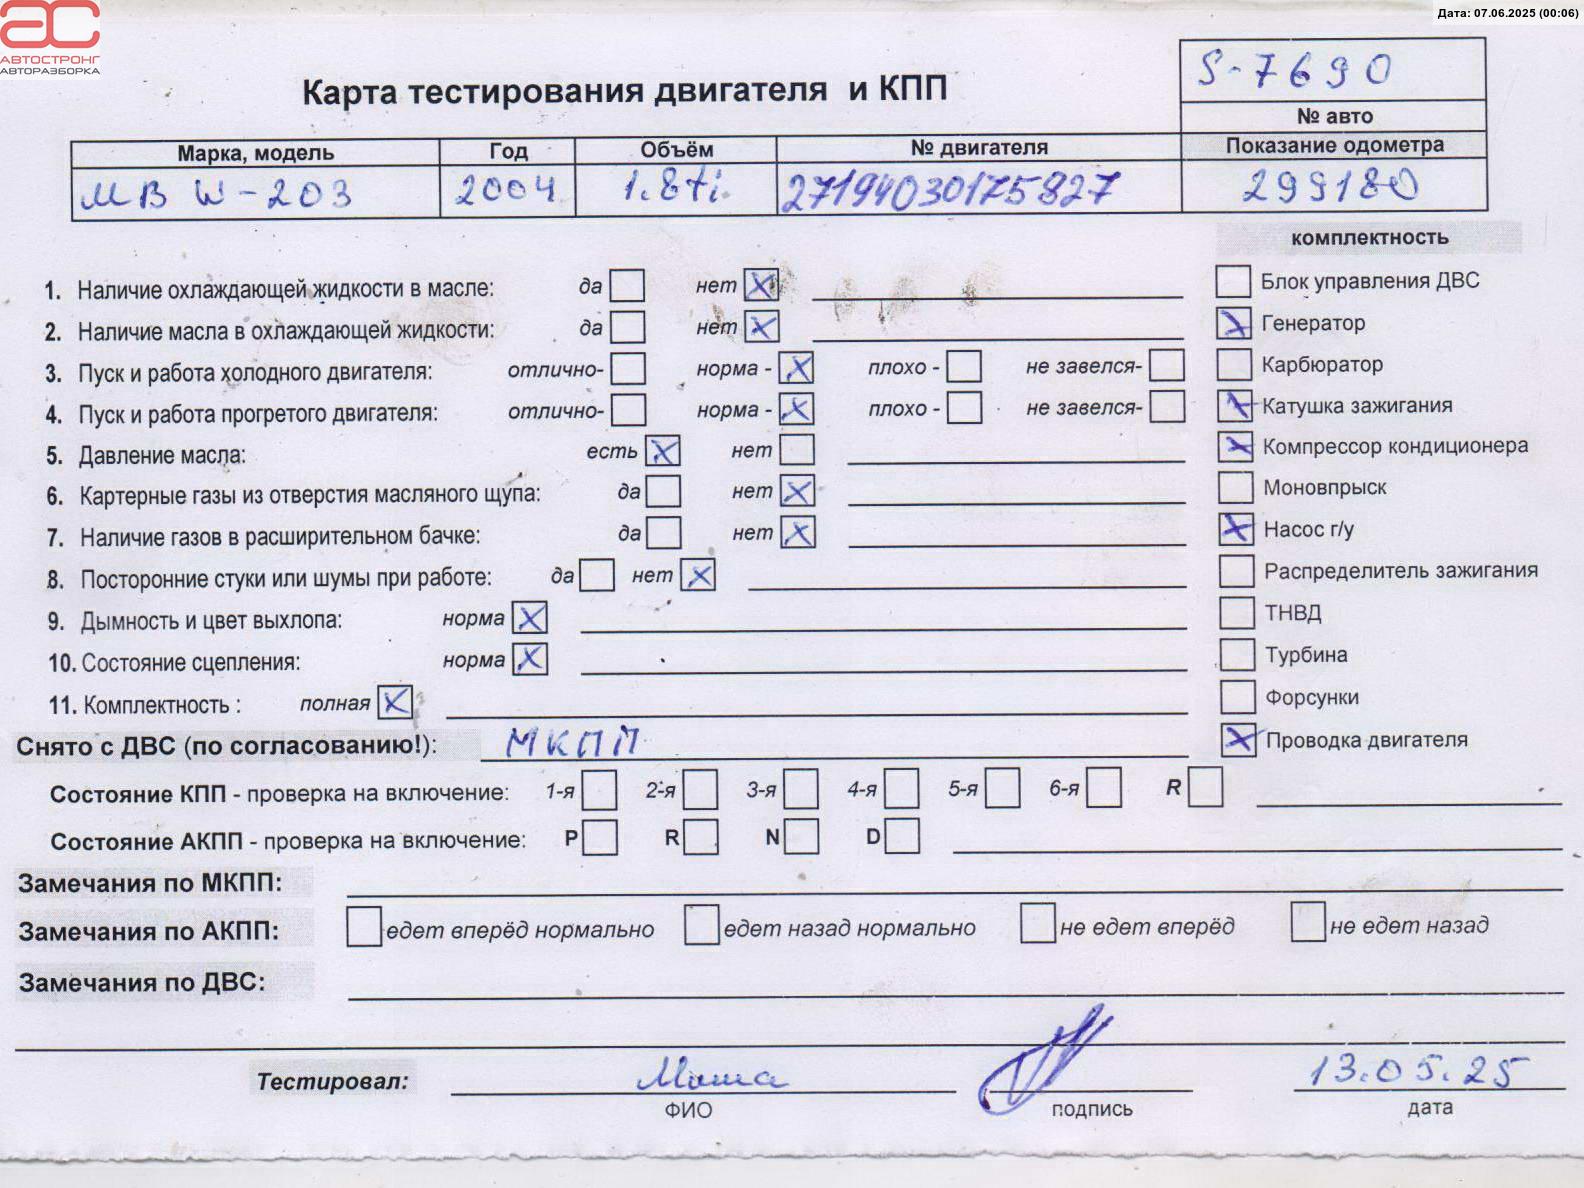 Дата: 07.06.2025 (00:06)
АВТОСТРОНГ
АВТОРАЗБОРКА
Карта тестирования двигателя и КПП
S-7690
№ авто
Марка, модель Год Объём № двигателя Показание одометра
МВ W-203 2004 1.8ti. 27194030175827 299180
комплектность
1. Наличие охлаждающей жидкости в масле: да нет
2. Наличие масла в охлаждающей жидкости: да нет
3. Пуск и работа холодного двигателя: отлично- норма - плохо - не завелся-
4. Пуск и работа прогретого двигателя: отлично- норма - плохо - не завелся-
5. Давление масла: есть нет
6. Картерные газы из отверстия масляного щупа: да нет
7. Наличие газов в расширительном бачке: да нет
8. Посторонние стуки или шумы при работе: да нет
9. Дымность и цвет выхлопа: норма
10. Состояние сцепления: норма
11. Комплектность : полная
Блок управления ДВС
Генератор
Карбюратор
Катушка зажигания
Компрессор кондиционера
Моновпрыск
Насос г/у
Распределитель зажигания
ТНВД
Турбина
Форсунки
Проводка двигателя
Снято с ДВС (по согласованию!): МКПП
Состояние КПП - проверка на включение: 1-я 2-я 3-я 4-я 5-я 6-я R
Состояние АКПП - проверка на включение: P R N D
Замечания по МКПП:
Замечания по АКПП: едет вперёд нормально едет назад нормально не едет вперёд не едет назад
Замечания по ДВС:
Тестировал: Миша 13.05.25
ФИО подпись дата